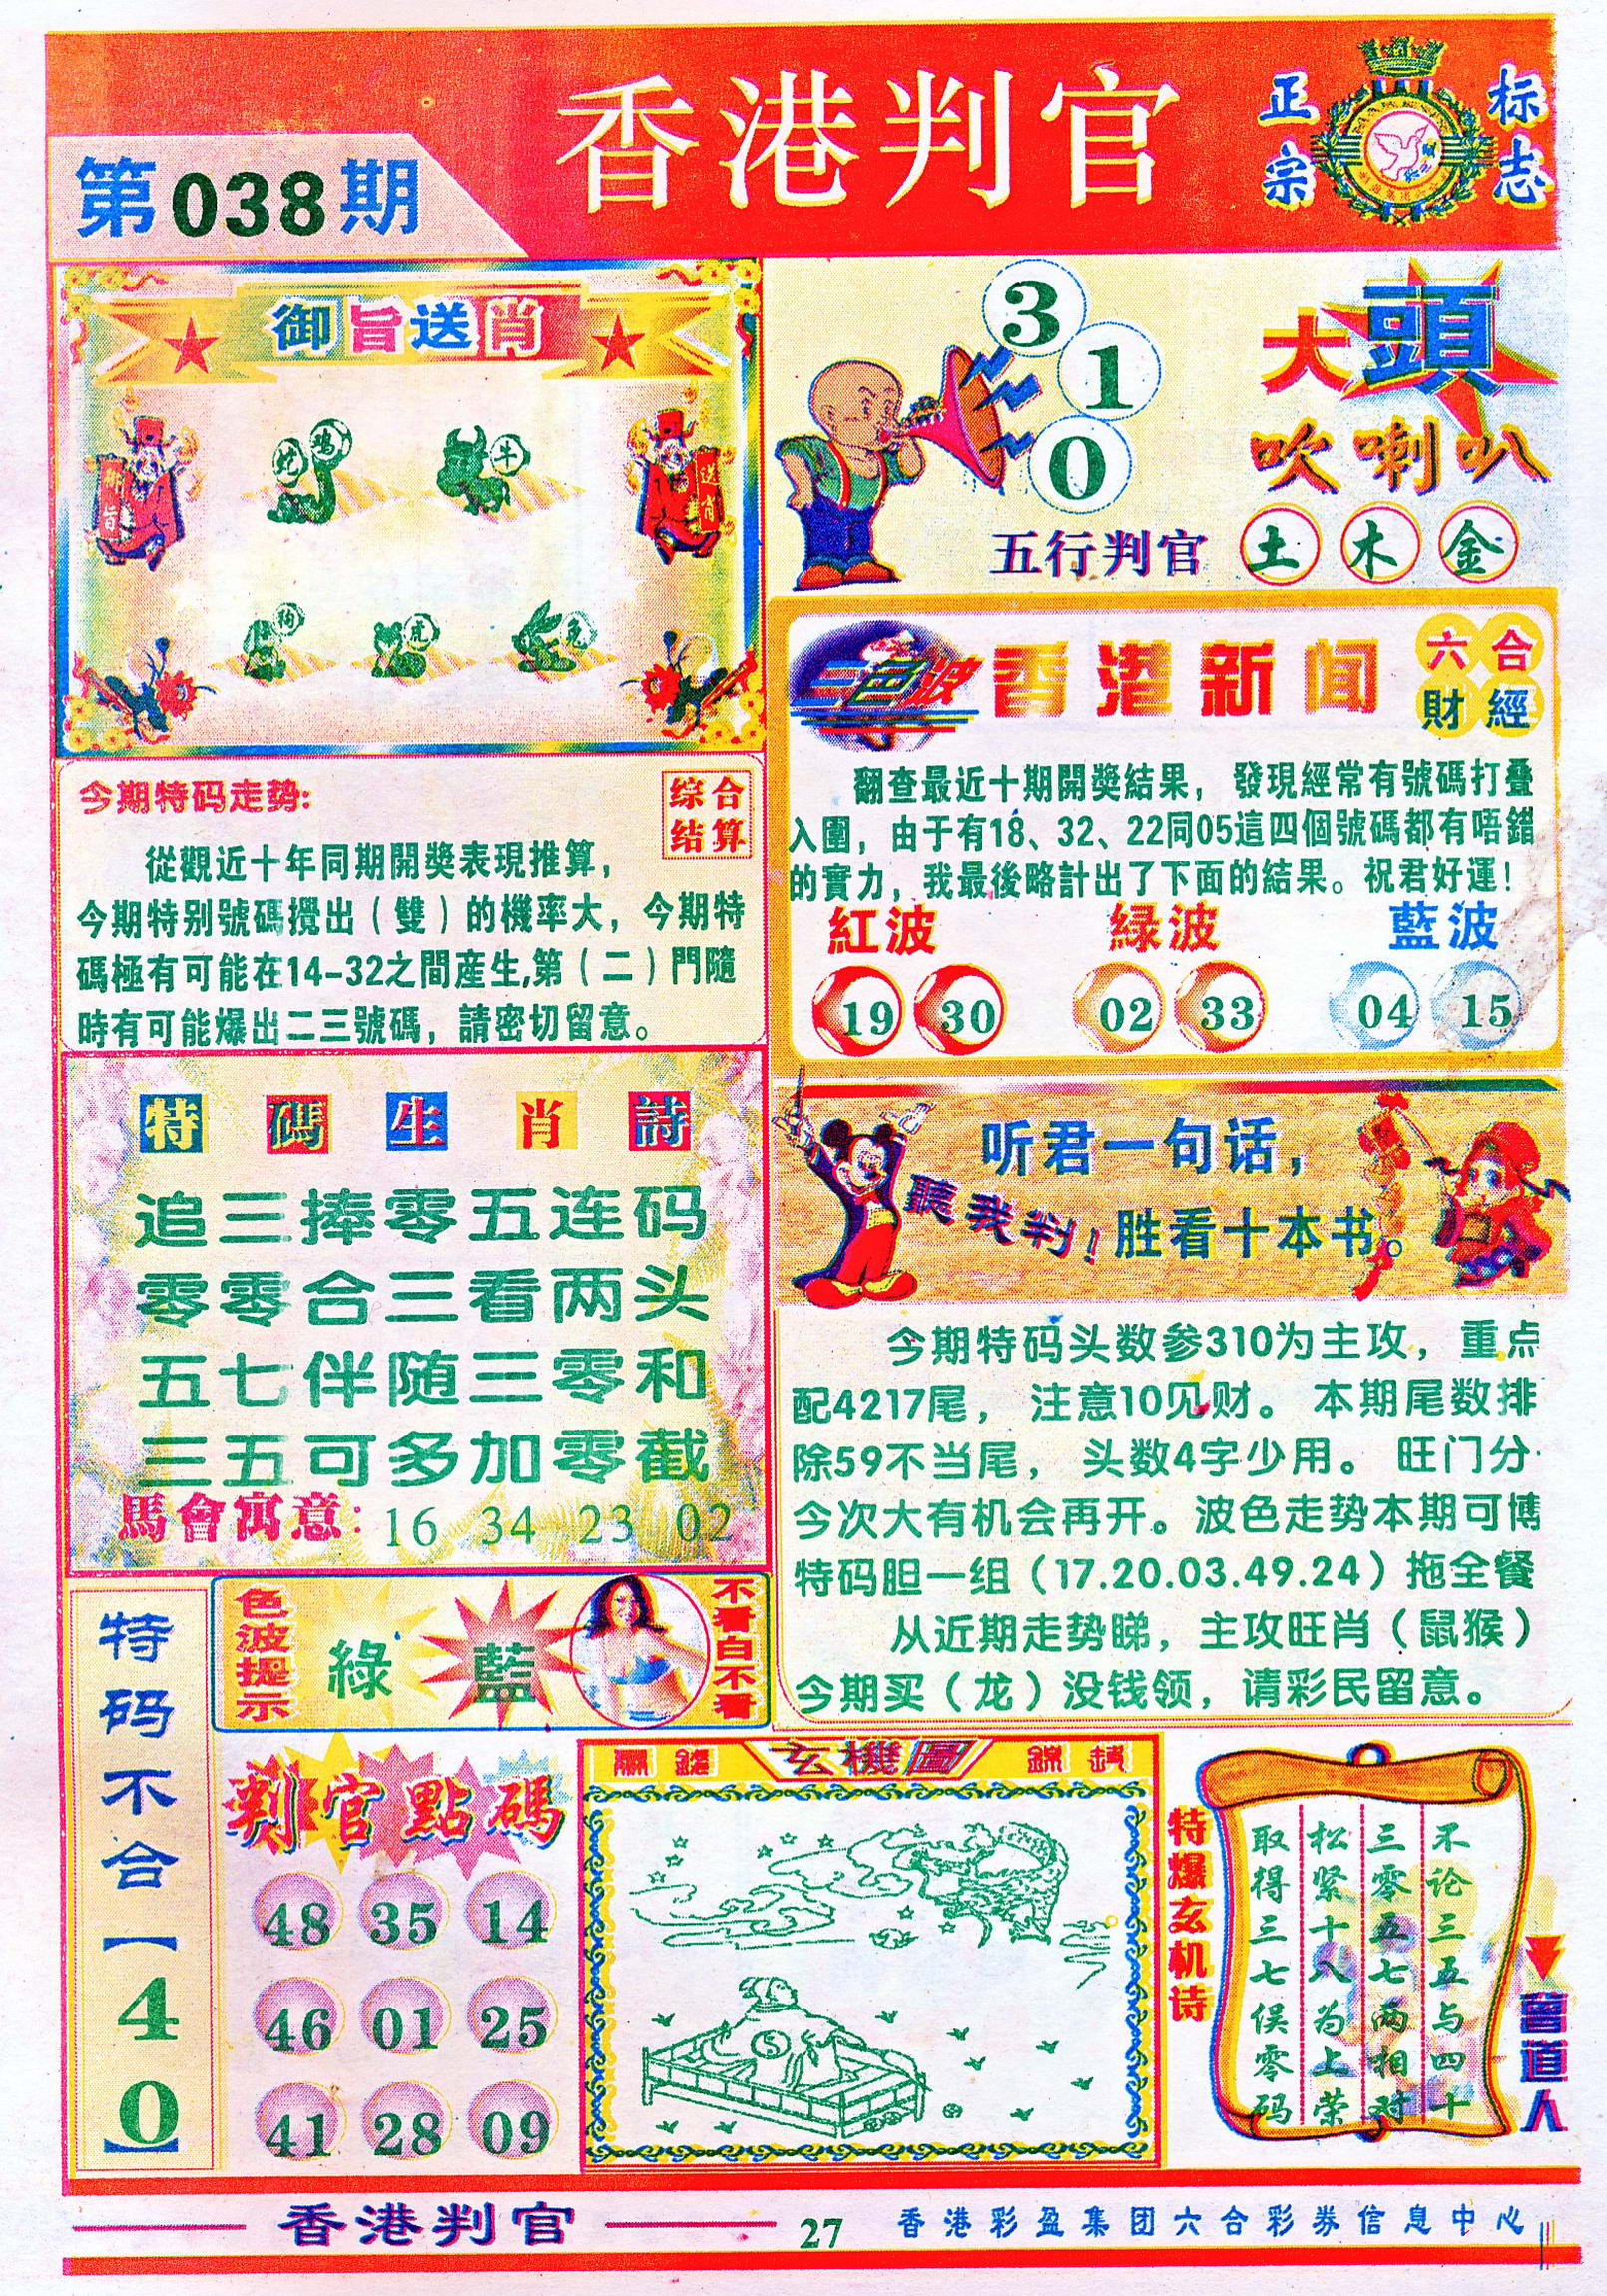 香港判官
正宗
标志
第038期
御旨送肖
御旨
送肖
蛇 鸡 牛
狗 虎 兔
3
1
0
大頭
吹喇叭
五行判官 土 木 金
今期特码走势:
综合
结算
從觀近十年同期開獎表現推算，
今期特别號碼攪出（雙）的機率大，今期特
碼極有可能在14-32之間産生,第（二）門隨
時有可能爆出二三號碼，請密切留意。
三色波 香港新闻
六合
財經
翻查最近十期開獎結果，發現經常有號碼打疊
入圍，由于有18、32、22同05這四個號碼都有唔錯
的實力，我最後略計出了下面的結果。祝君好運！
紅波 緑波 藍波
19 30 02 33 04 15
特碼生肖詩
追三捧零五连码
零零合三看两头
五七伴随三零和
三五可多加零截
馬會寓意：16 34 23 02
听君一句话，
聽我判！
胜看十本书。
今期特码头数参310为主攻，重点
配4217尾，注意10见财。本期尾数排
除59不当尾，头数4字少用。旺门分·
今次大有机会再开。波色走势本期可博
特码胆一组（17.20.03.49.24）拖全餐
从近期走势睇，主攻旺肖（鼠猴）
今期买（龙）没钱领，请彩民留意。
特码不合【40】
色波提示
綠 藍
不看白不看
判官點碼
48 35 14
46 01 25
41 28 09
玄機圖
特爆玄机诗
不论三五与四十
三零五七两相对
松紧十八为上荣
取得三七俣零码
曾道人
香港判官
27
香港彩盈集团六合彩券信息中心